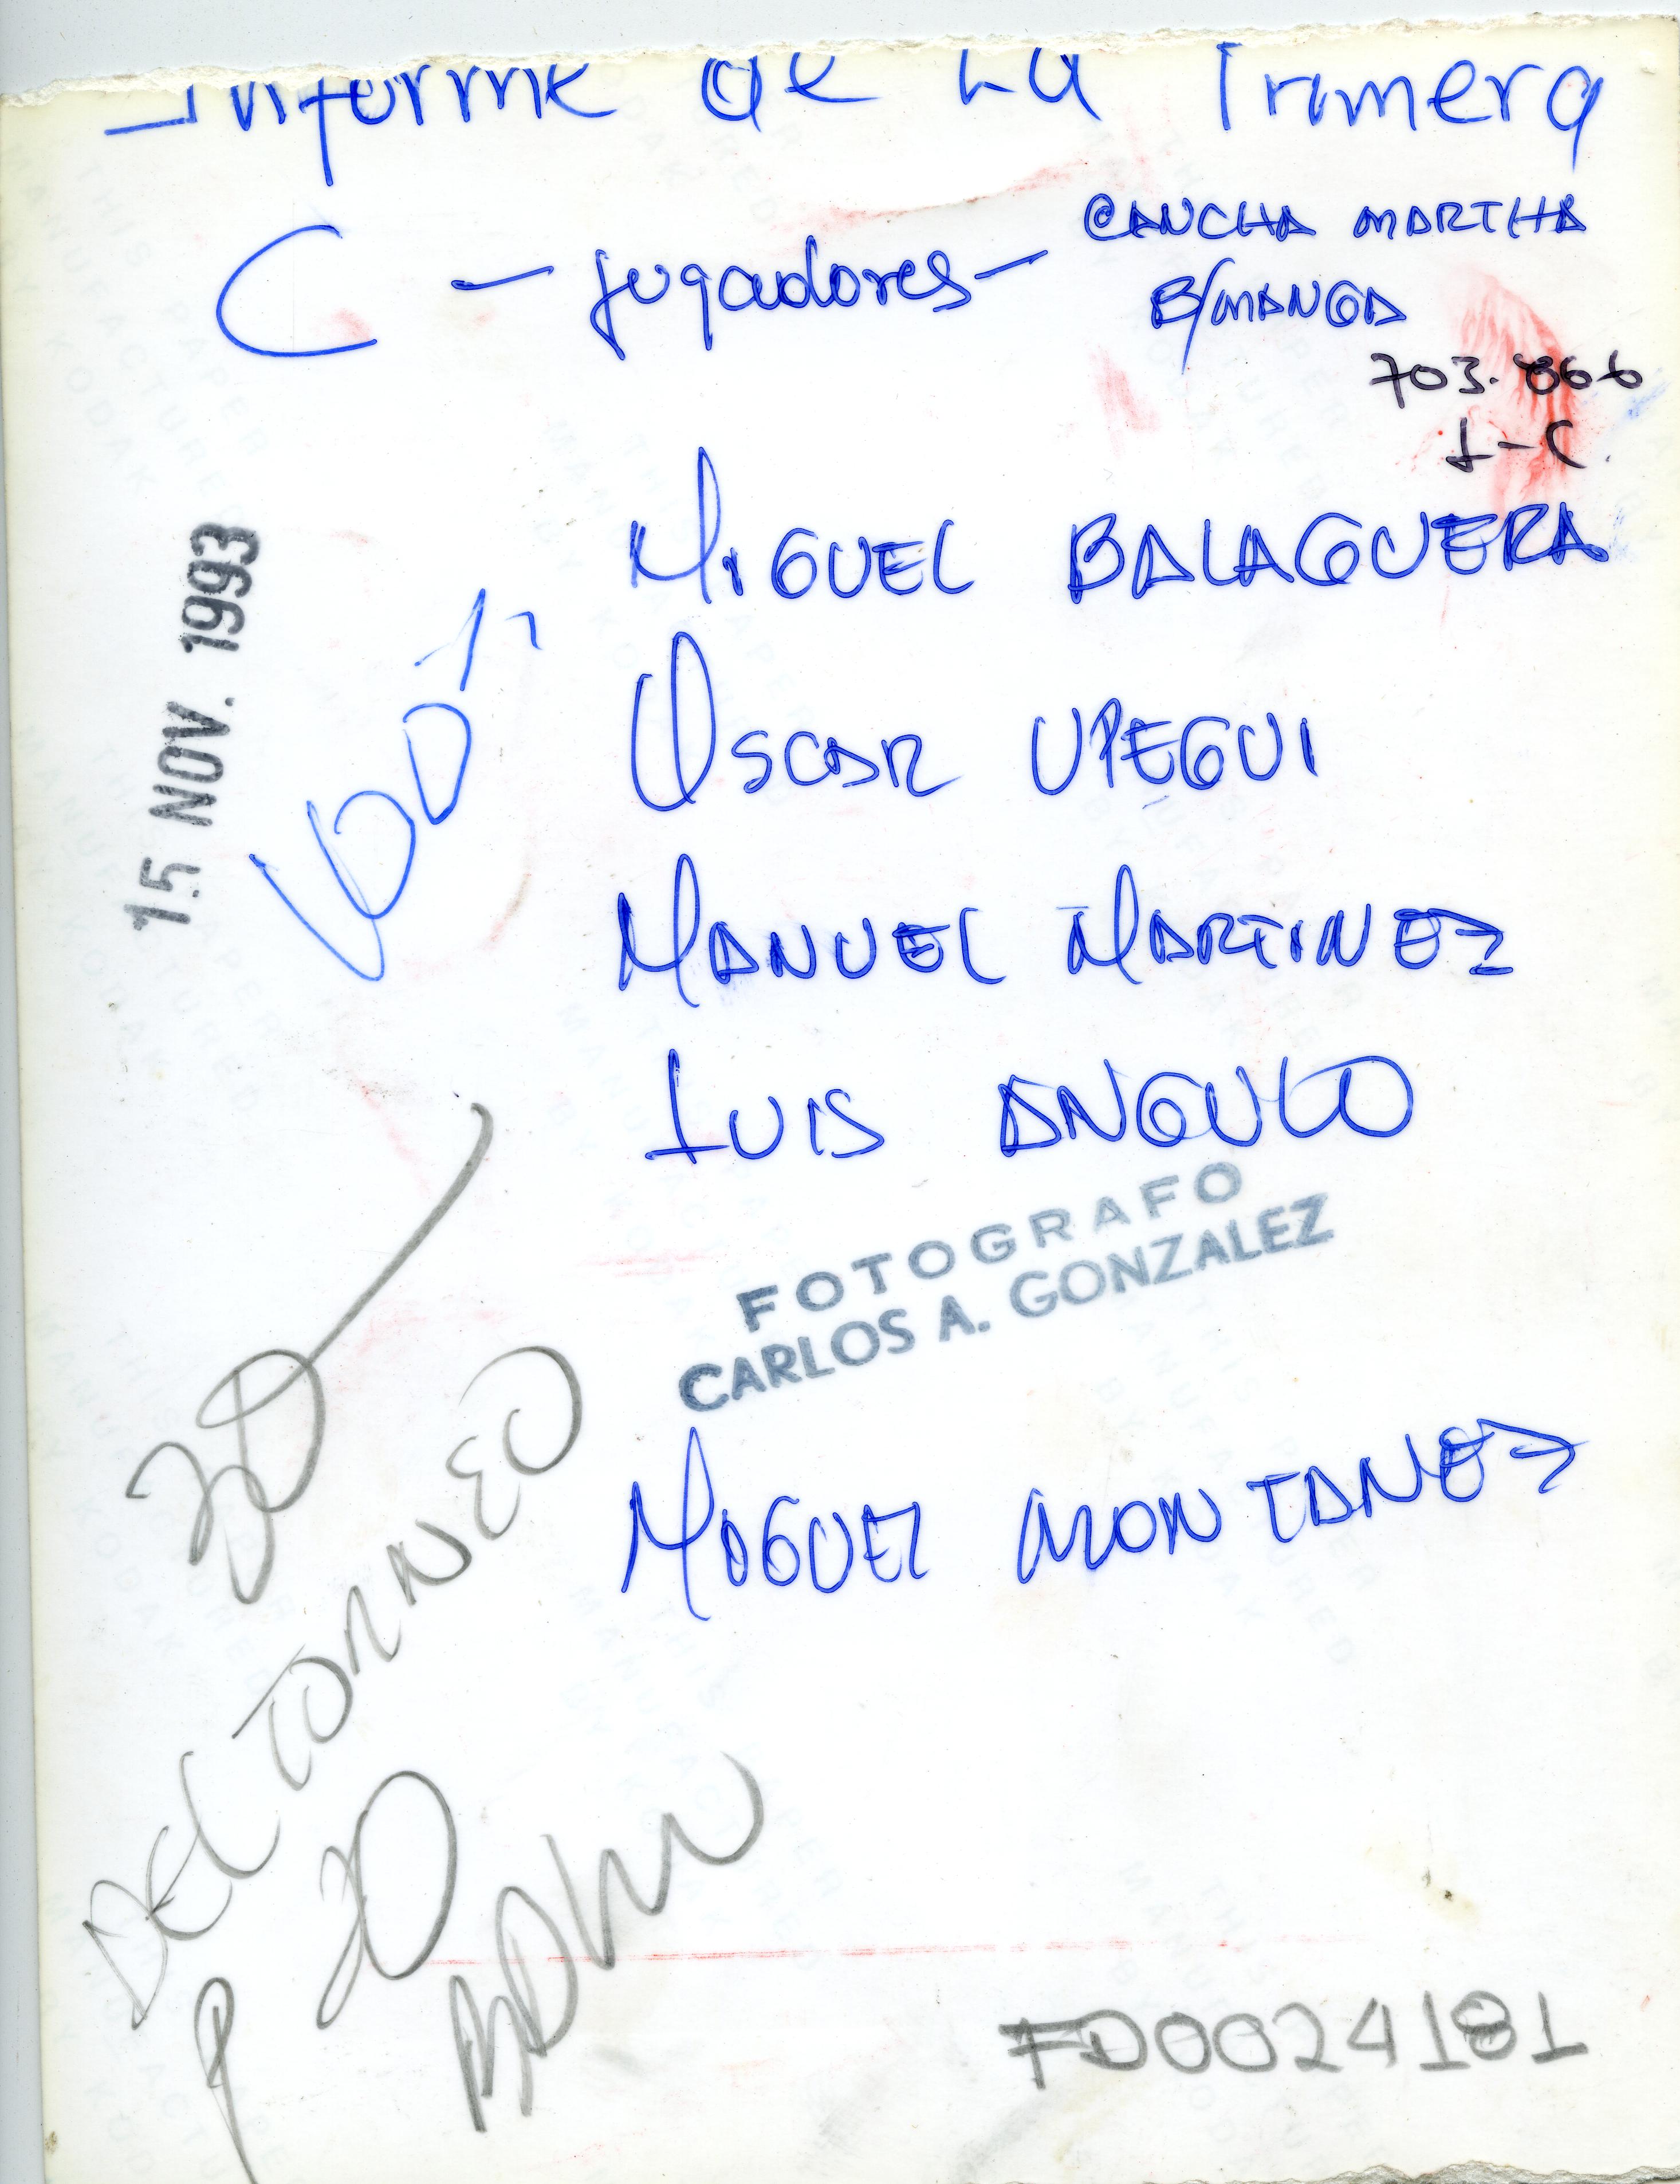 Informe de La Primera
C - jugadores -
CANCHA MARTHA
B/MANGA
703.866
1-C.
MIGUEL BALAGUERA
OSCAR UPEGUI
MANUEL MARTINEZ
LUIS ANGULO
FOTOGRAFO
CARLOS A. GONZALEZ
MIGUEL MONTANEZ
15 NOV. 1993
DEL TORNEO
P 20
FD0024181